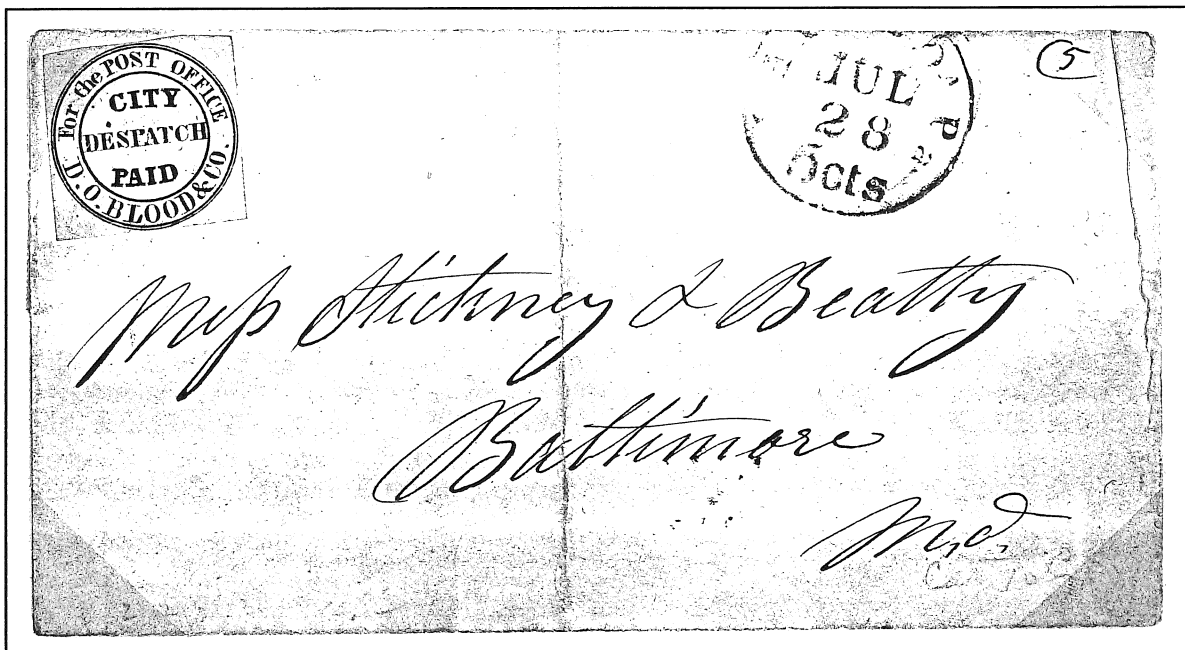 For the POST OFFICE
CITY
DESPATCH
PAID
D.O. BLOOD & CO.
JUL
28
5
Mess Stickney & Beatty
Baltimore
Md,